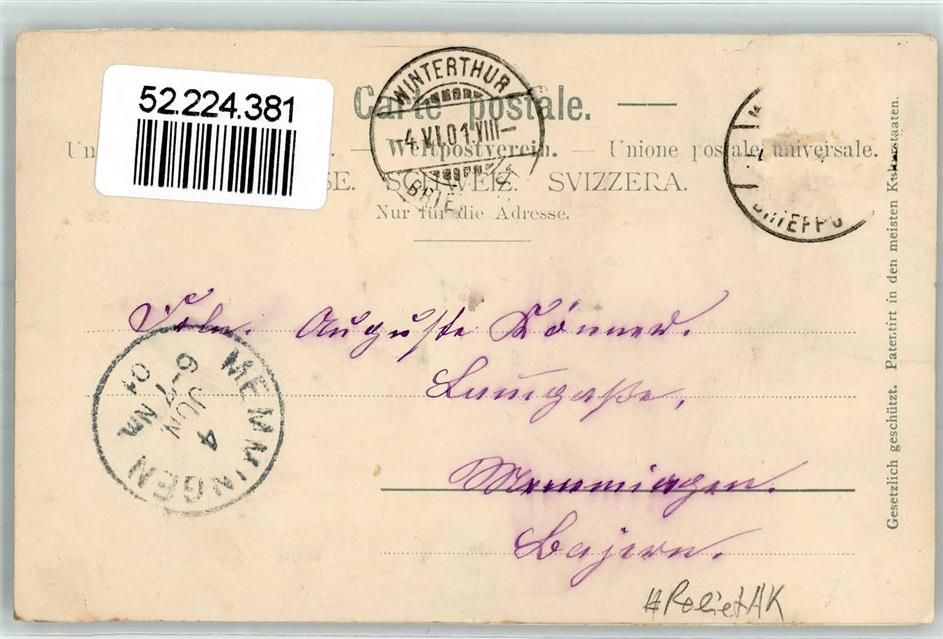 52.224.381
Carte postale.
Un — Weltpostverein. — Unione postale universale.
SE. SCHWEIZ. SVIZZERA.
Nur für die Adresse.
WINTERTHUR
4.VI.01.VIII—
BRIE
BRIEFPO
Frln. Auguste Könner.
Memmingen.
Bayern.
MEMMINGEN
4
JUN
6-7 Nm.
01
Gesetzlich geschützt. Patentirt in den meisten Kulturstaaten.
#ReliefAK